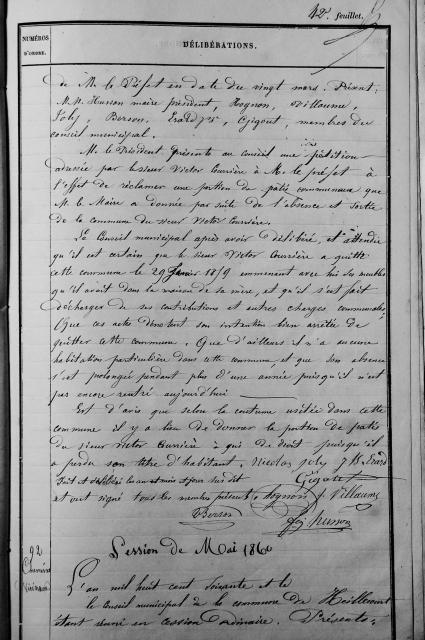 42e feuillet.
NUMÉROS
D'ORDRE.
DÉLIBÉRATIONS.
de Mr le Préfet en date du vingt mars. Présent :
M.M. Husson maire président, Rognon, Villaume,
Joly, Berson, Erard J B, Gigout, membres du
conseil municipal.
Mr le Président présente au conseil une pétition
adressée par le sieur Victor Courrière à Mr le préfet à
l'effet de réclamer une portion de patis communaux que
M. le Maire a donnée par suite de l'absence et sortie
de la commune du sieur Victor Courrière.
Le Conseil municipal après avoir délibéré, et attendu
qu'il est certain que le sieur Victor Courrière a quitté
cette commune le 29 Janvier 1859 emmenant avec lui ses meubles
qu'il avait dans la maison de sa mère, et qu'il s'est fait
décharger de ses contributions et autres charges communales
Que ces actes dénotent son intention bien arrêtée de
quitter cette commune. Que d'ailleurs il n'a aucune
habitation particulière dans cette commune et que son absence
s'est prolongée pendant plus d'une année puisqu'il n'est
pas encore rentré aujourd'hui
Est d'avis que selon la coutume usitée dans cette
commune il y a lieu de donner la portion de patis
du sieur Victor Courrière à qui de droit puisqu'il
a perdu son titre d'habitant. Nicolas Joly J B Erard
Fait et délibéré les an mois et jour susdit Gigout
et ont signé tous les membres présents. Rognon J Villaume
Berson Husson
92
Session de Mai 1860
L'an mil huit cent soixante et le
le Conseil municipal de la commune de Hoéllecourt
étant réuni en cession ordinaire. Présents :